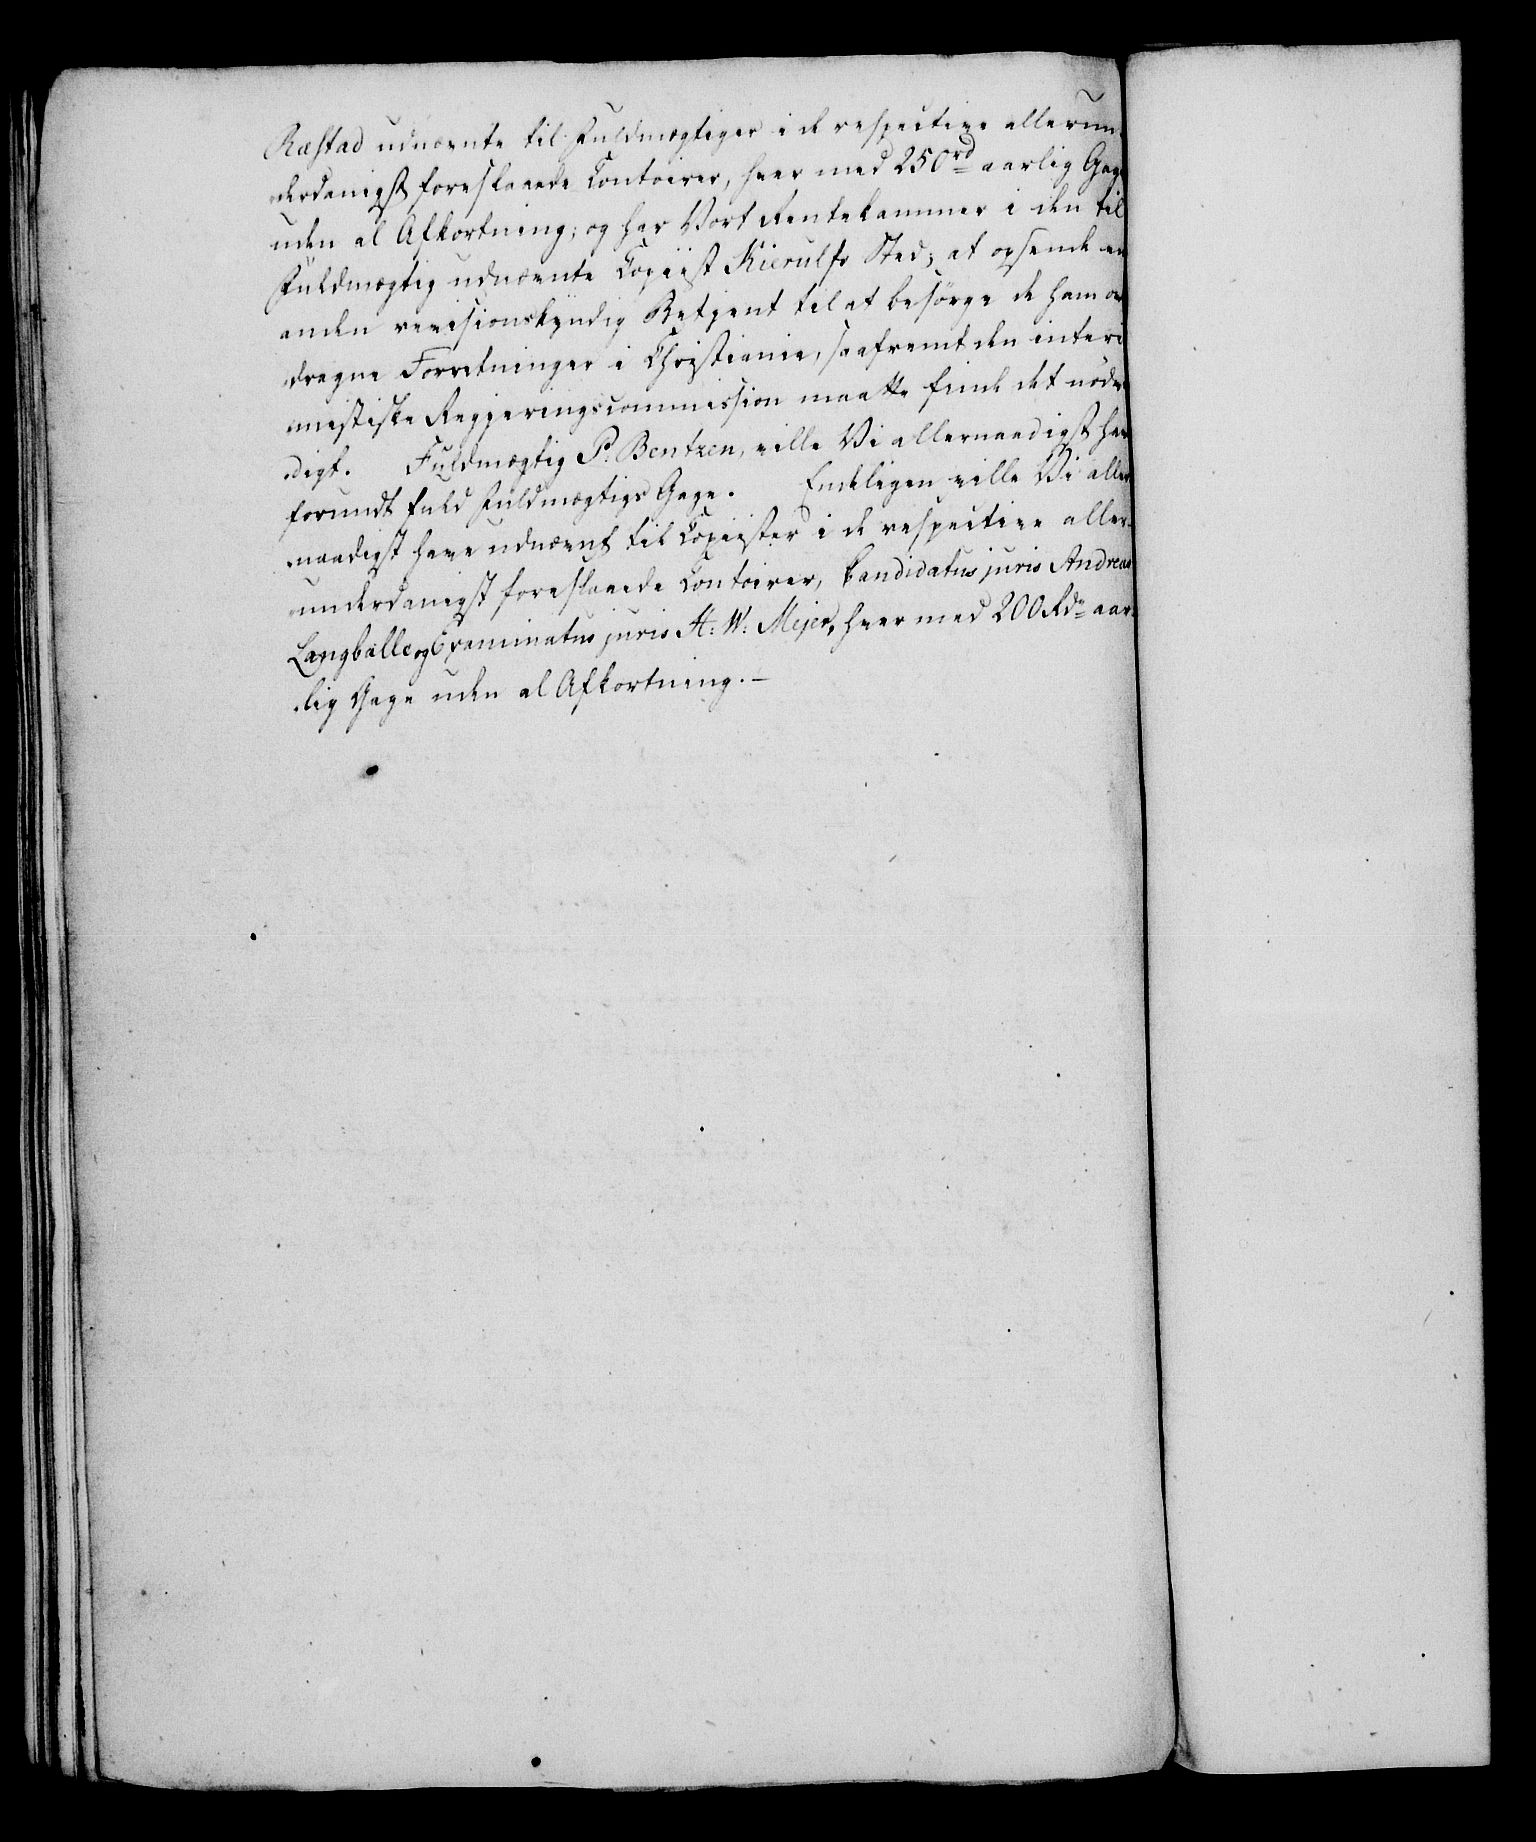 Ræstad udnævnte til Fuldmægtiger i de respective allerun-
derdanigst foreslaaede Contoirer, hver med 250 rd aarlig Gage
uden al Afkortning; og har Vort Rentekammer i den til
Fuldmægtig udnævnte Copiist Kierulfs Sted, at opsende en
anden revisionskyndig Betjent til at besørge de ham over-
dragne Forretninger i Christiania, saafremt den interi-
mistiske Regjeringscommission maatte finde det nødven-
digt. Fuldmægtig P. Bentzen, ville Vi allernaadigst have
forundt fuld Fuldmægtigs Gage. Endeligen ville Vi aller-
naadigst have udnævnt til Copiister i de respective aller-
underdanigst foreslaaede Contoirer, Candidatus juris Andreas
Langballe og Examinatus juris H: W: Mejer, hver med 200 Rdr aar-
lig Gage uden al Afkortning. –